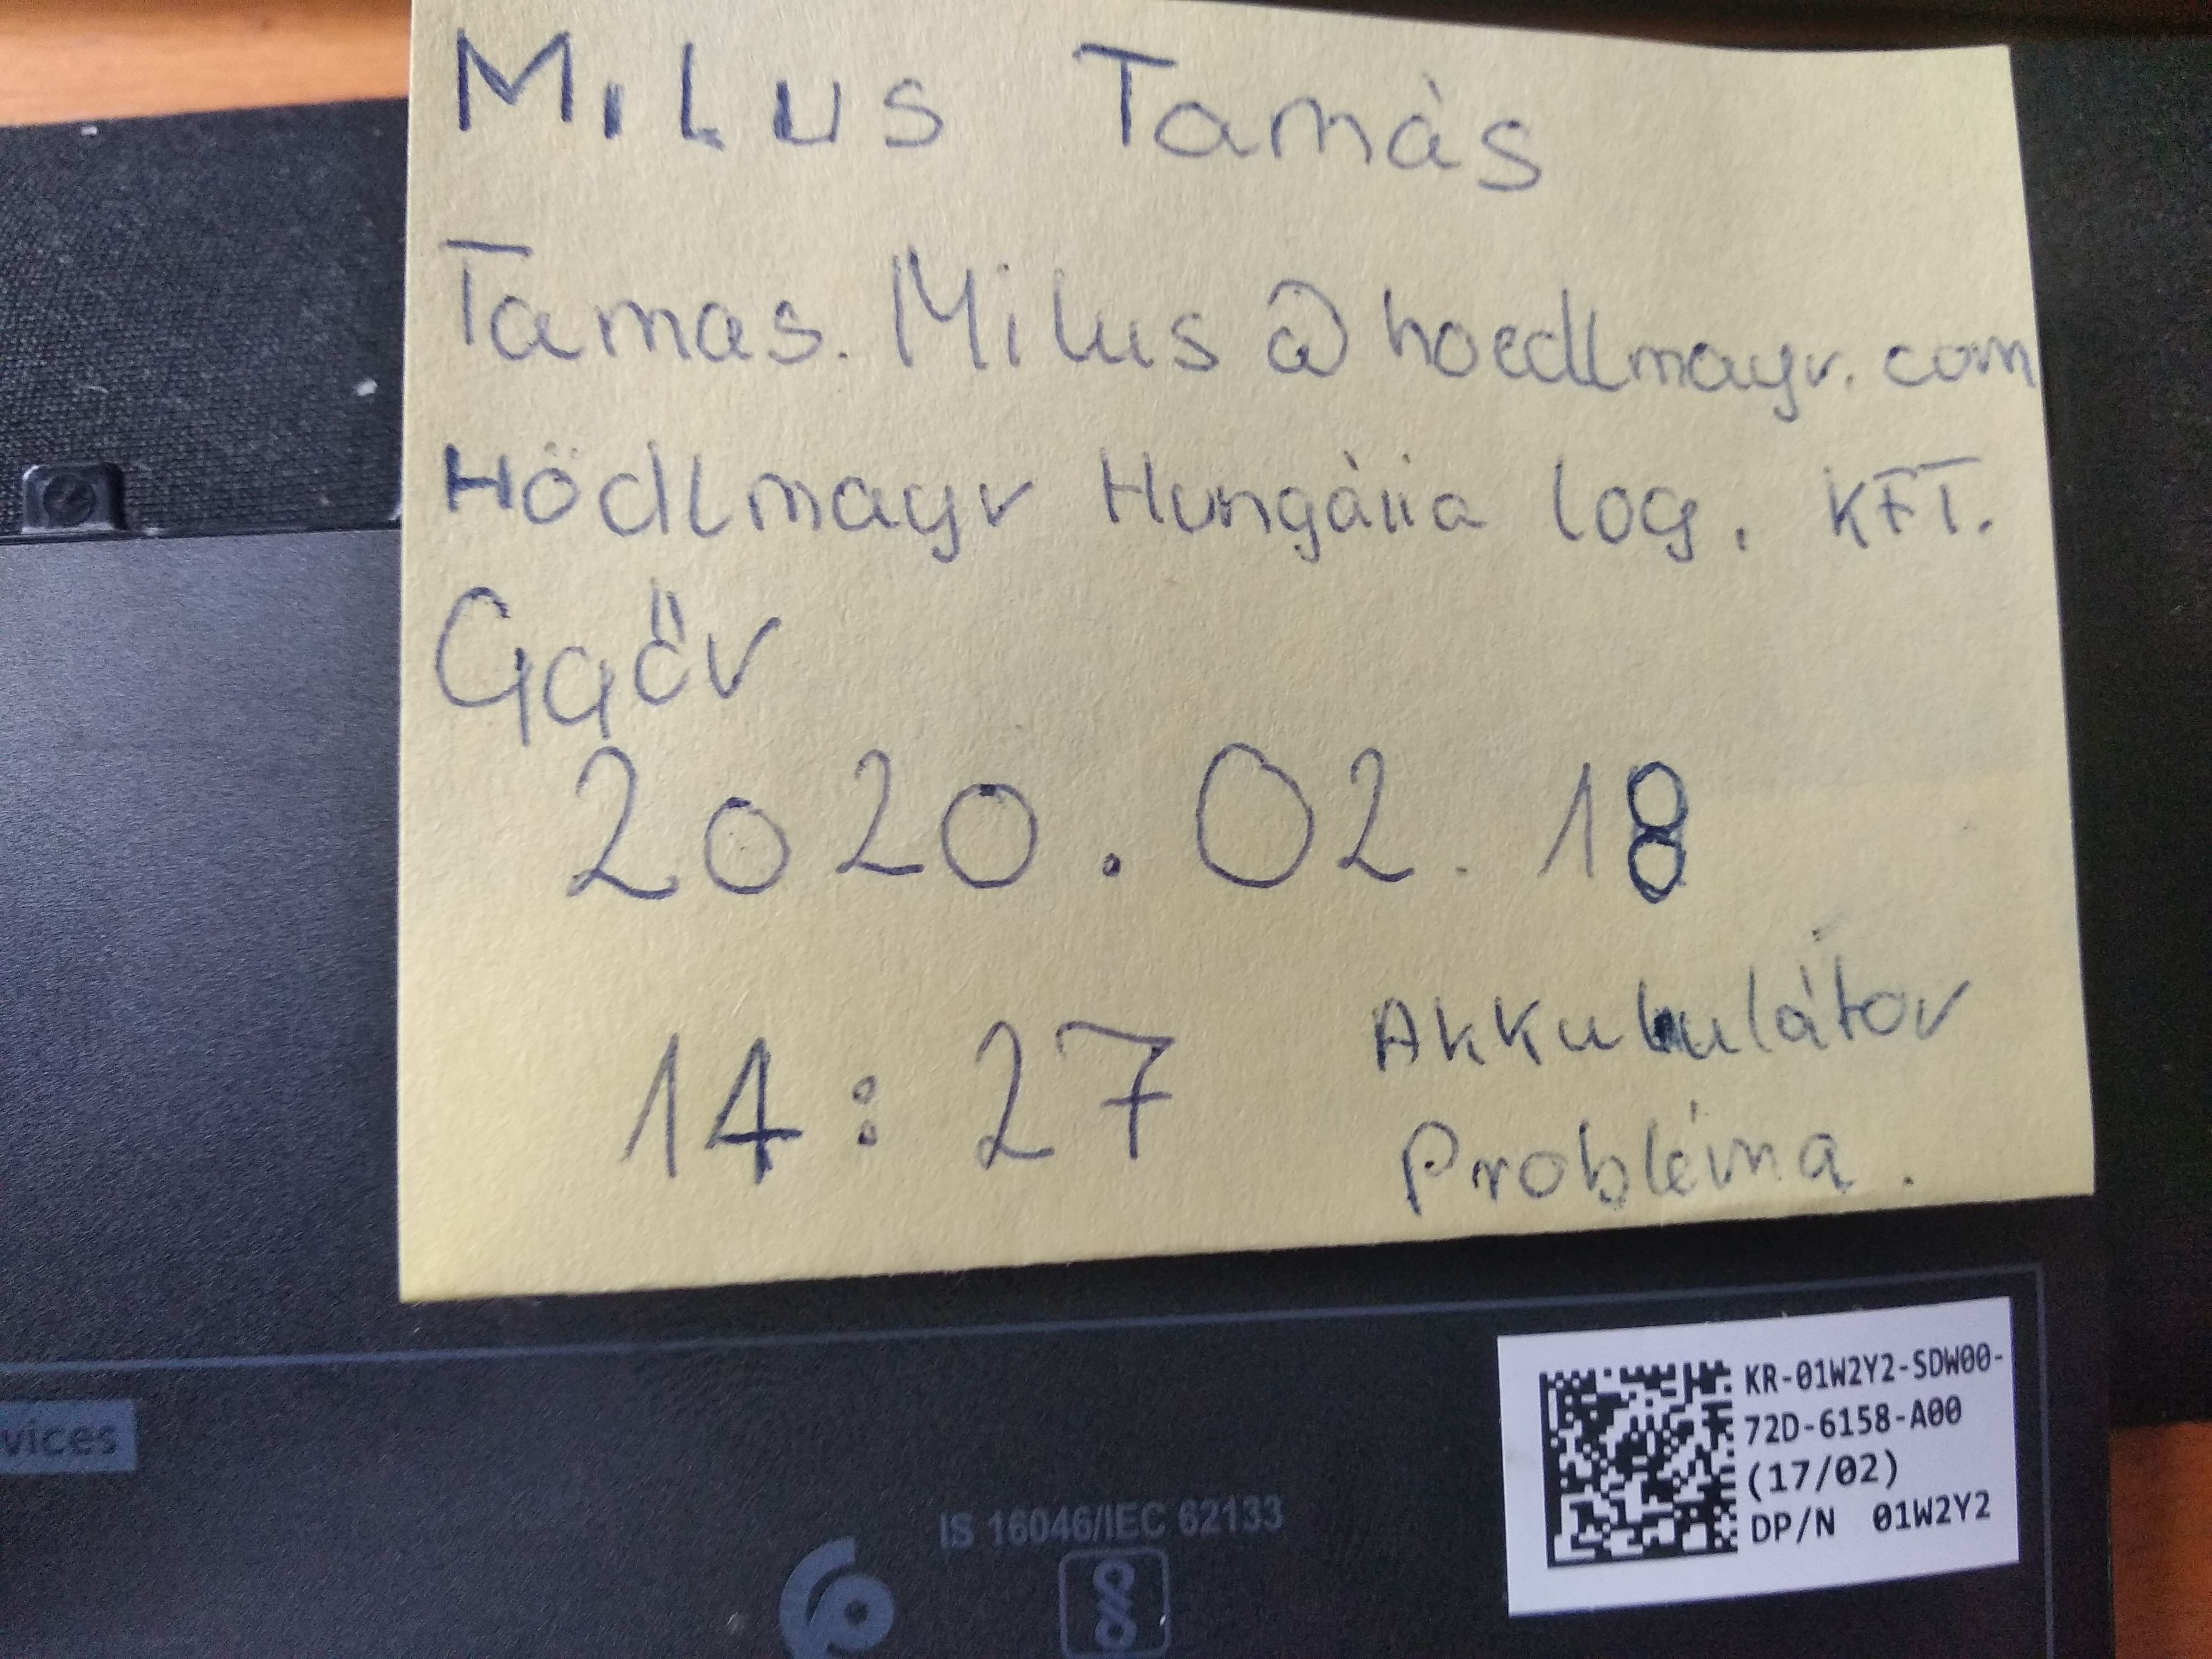 Milus Tamás
Tamas.Milus@hoedlmayr.com
Hödlmayr Hungária log. KFT.
Győr
2020.02.18
14:27
Akkumulátor
Probléma.
vices
IS 16046/IEC 62133
KR-01W2Y2-SDW00-
72D-6158-A00
(17/02)
DP/N 01W2Y2